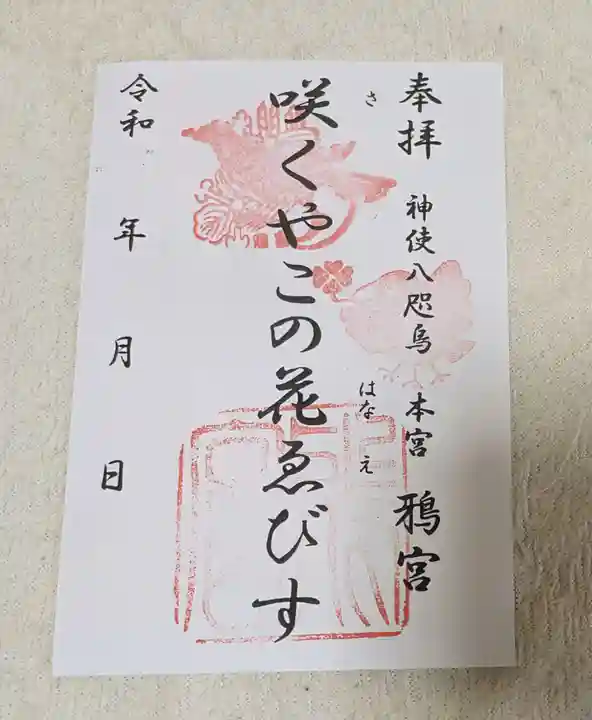 奉拝 神使八咫烏 本宮 鴉宮
さ はな え
咲くやこの花ゑびす
令和 年 月 日